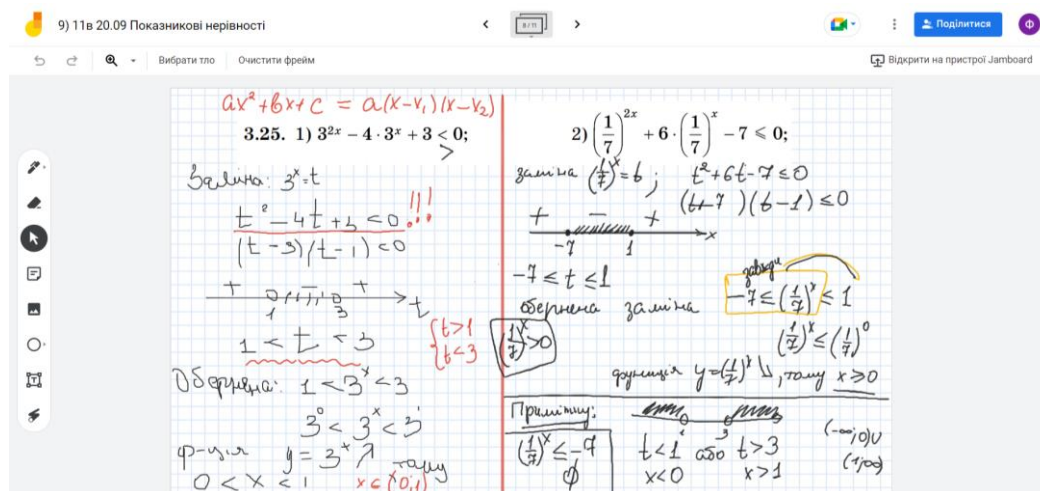 9) 11в 20.09 Показникові нерівності
8 / 11
Поділитися
Ф
Вибрати тло
Очистити фрейм
Відкрити на пристрої Jamboard
ax² + bx + c = a(x-x₁)(x-x₂)
3.25. 1) 3^{2x} − 4 · 3^x + 3 < 0;
>
Заміна: 3^x = t
t² − 4t + 3 < 0 !!!
(t−3)(t−1) < 0
+ − +
1 3 t
1 < t < 3
{ t>1
t<3
Обернена: 1 < 3^x < 3
3^0 < 3^x < 3^1
ф-ція y = 3^x ↗ тому
0 < x < 1 x ∈ (0;1)
2) (1/7)^{2x} + 6 · (1/7)^x − 7 ⩽ 0;
заміна (1/7)^x = t; t² + 6t − 7 ≤ 0
(t+7)(t−1) ≤ 0
+ − +
−7 1 x
−7 ≤ t ≤ 1
завжди
обернена заміна −7 ≤ (1/7)^x ≤ 1
(1/7)^x > 0
(1/7)^x ≤ (1/7)^0
функція y = (1/7)^x ↘, тому x ≥ 0
Примітку:
(1/7)^x ≤ −7
∅
1 3
t < 1 або t > 3
x < 0 x > 1
(−∞;0)∪
(1;∞)